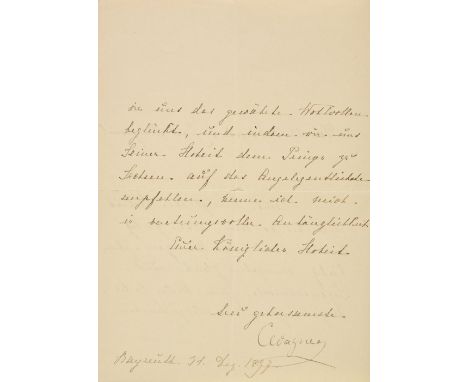 in uns das gewährte Wohlwollen
beglückt, und indem wir uns
Seiner Hoheit dem Prinzen zu
Sachsen auf das Angelegentlichste
empfehlen, nenne ich mich
in verehrungsvoller Anhänglichkeit
Eurer Königlichen Hoheit
treu gehorsamste
CWagner
Bayreuth 31. Dez. 1897